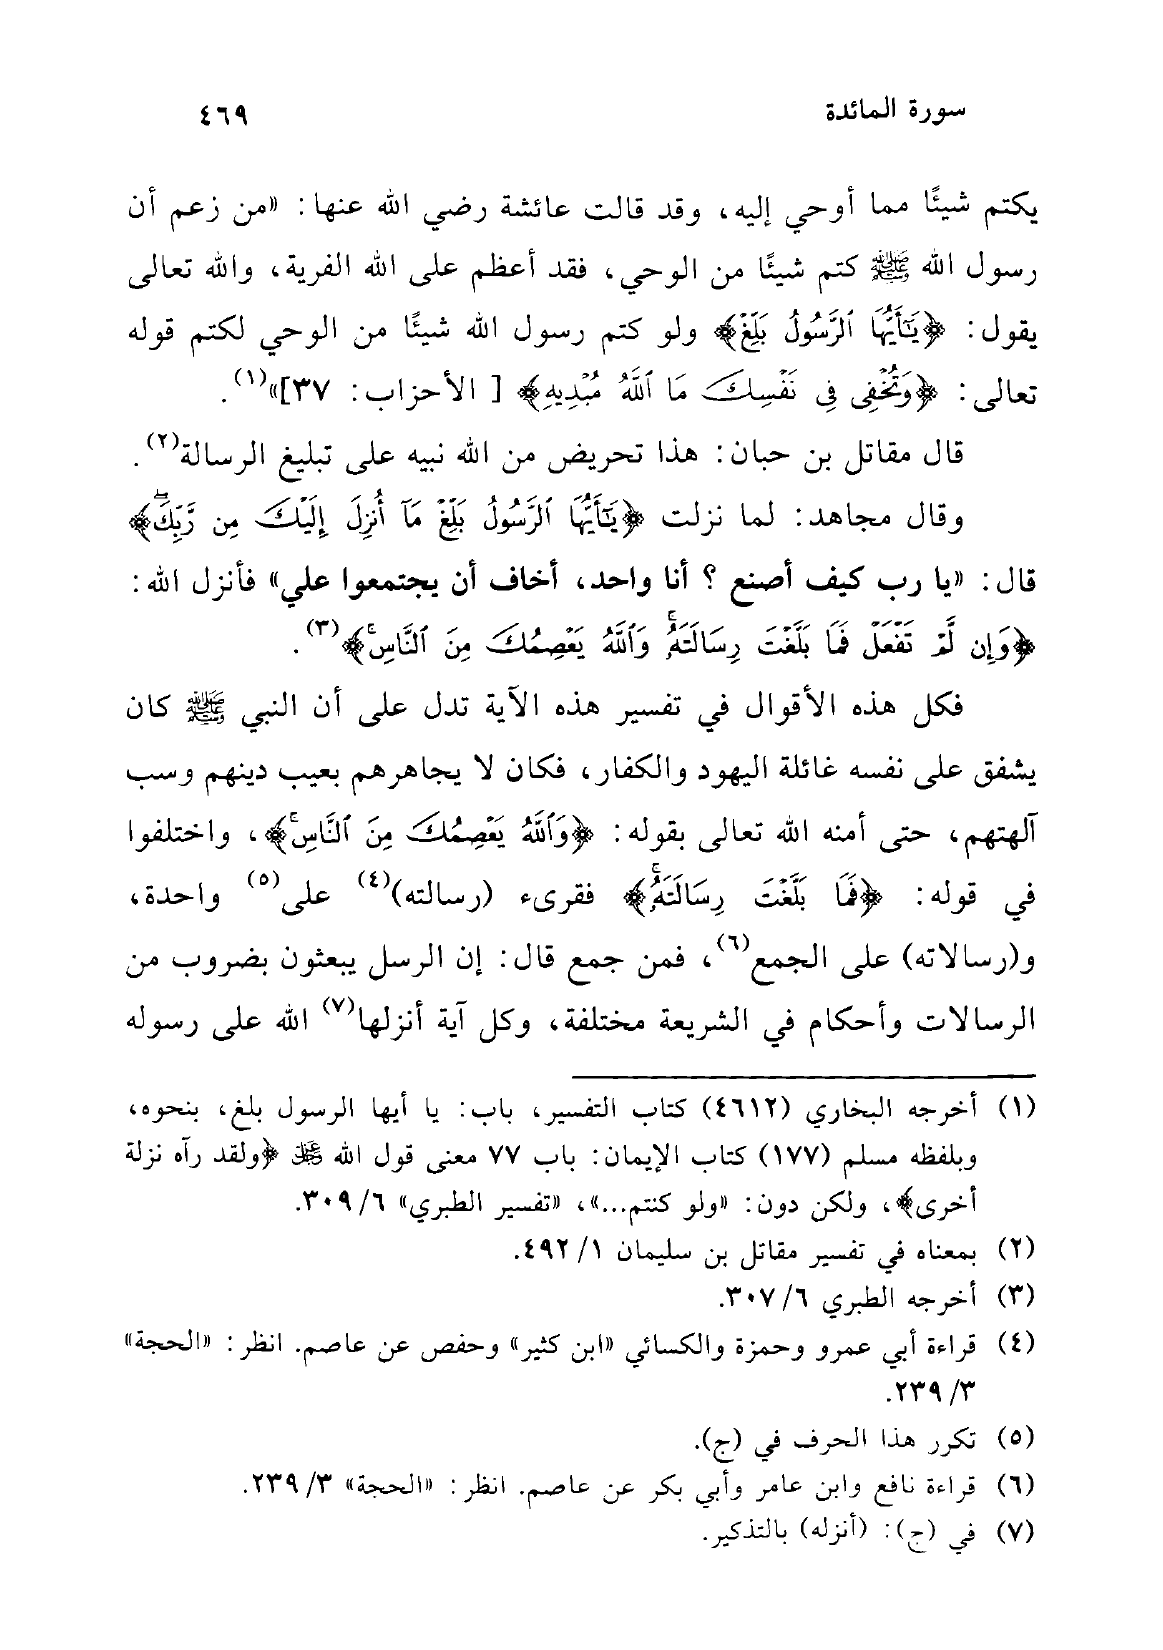 سورة المائدة
٤٦٩
يكتم شيئًا مما أوحي إليه، وقد قالت عائشة رضي الله عنها: «من زعم أن
رسول الله ﷺ كتم شيئًا من الوحي، فقد أعظم على الله الفرية، والله تعالى
يقول: ﴿يَٰٓأَيُّهَا ٱلرَّسُولُ بَلِّغۡ﴾ ولو كتم رسول الله شيئًا من الوحي لكتم قوله
تعالى: ﴿وَتُخۡفِي فِي نَفۡسِكَ مَا ٱللَّهُ مُبۡدِيهِ﴾ [ الأحزاب: ٣٧]»(١).
قال مقاتل بن حبان: هذا تحريض من الله نبيه على تبليغ الرسالة(٢).
وقال مجاهد: لما نزلت ﴿يَٰٓأَيُّهَا ٱلرَّسُولُ بَلِّغۡ مَآ أُنزِلَ إِلَيۡكَ مِن رَّبِّكَۖ﴾
قال: «يا رب كيف أصنع ؟ أنا واحد، أخاف أن يجتمعوا علي» فأنزل الله:
﴿وَإِن لَّمۡ تَفۡعَلۡ فَمَا بَلَّغۡتَ رِسَالَتَهُۥۚ وَٱللَّهُ يَعۡصِمُكَ مِنَ ٱلنَّاسِۚ﴾(٣).
فكل هذه الأقوال في تفسير هذه الآية تدل على أن النبي ﷺ كان
يشفق على نفسه غائلة اليهود والكفار، فكان لا يجاهرهم بعيب دينهم وسب
آلهتهم، حتى أمنه الله تعالى بقوله: ﴿وَٱللَّهُ يَعۡصِمُكَ مِنَ ٱلنَّاسِۚ﴾، واختلفوا
في قوله: ﴿فَمَا بَلَّغۡتَ رِسَالَتَهُۥۚ﴾ فقرىء (رسالته)(٤) على(٥) واحدة،
و(رسالاته) على الجمع(٦)، فمن جمع قال: إن الرسل يبعثون بضروب من
الرسالات وأحكام في الشريعة مختلفة، وكل آية أنزلها(٧) الله على رسوله
(١) أخرجه البخاري (٤٦١٢) كتاب التفسير، باب: يا أيها الرسول بلغ، بنحوه،
وبلفظه مسلم (١٧٧) كتاب الإيمان: باب ٧٧ معنى قول الله ﷿ ﴿ولقد رآه نزلة
أخرى﴾، ولكن دون: «ولو كنتم...»، «تفسير الطبري» ٦/ ٣٠٩.
(٢) بمعناه في تفسير مقاتل بن سليمان ١/ ٤٩٢.
(٣) أخرجه الطبري ٦/ ٣٠٧.
(٤) قراءة أبي عمرو وحمزة والكسائي «ابن كثير» وحفص عن عاصم. انظر: «الحجة»
٣/ ٢٣٩.
(٥) تكرر هذا الحرف في (ج).
(٦) قراءة نافع وابن عامر وأبي بكر عن عاصم. انظر: «الحجة» ٣/ ٢٣٩.
(٧) في (ج): (أنزله) بالتذكير.